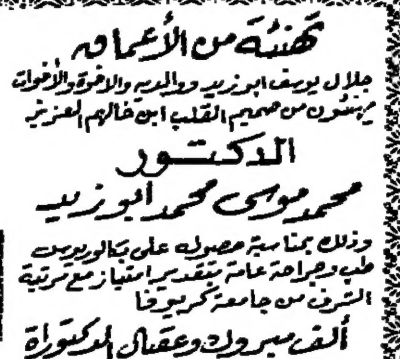 تهنئة من الأعماق
جلال يوسف ابوزيد ووالديه والاخوة والأخوات
يهنئون من صميم القلب ابن خالهم العزيز
الدكتور
محمد موسى محمد ابوزيد
وذلك بمناسبة حصوله على بكالوريوس
طب وجراحة عامة بتقدير امتياز مع مرتبة
الشرف من جامعة كريوفا
ألف مبروك وعقبال الدكتوراة